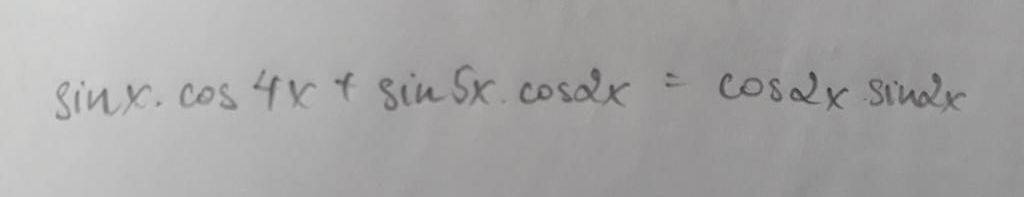 sinx. cos 4x + sin 5x. cos2x = cos2x sin2x